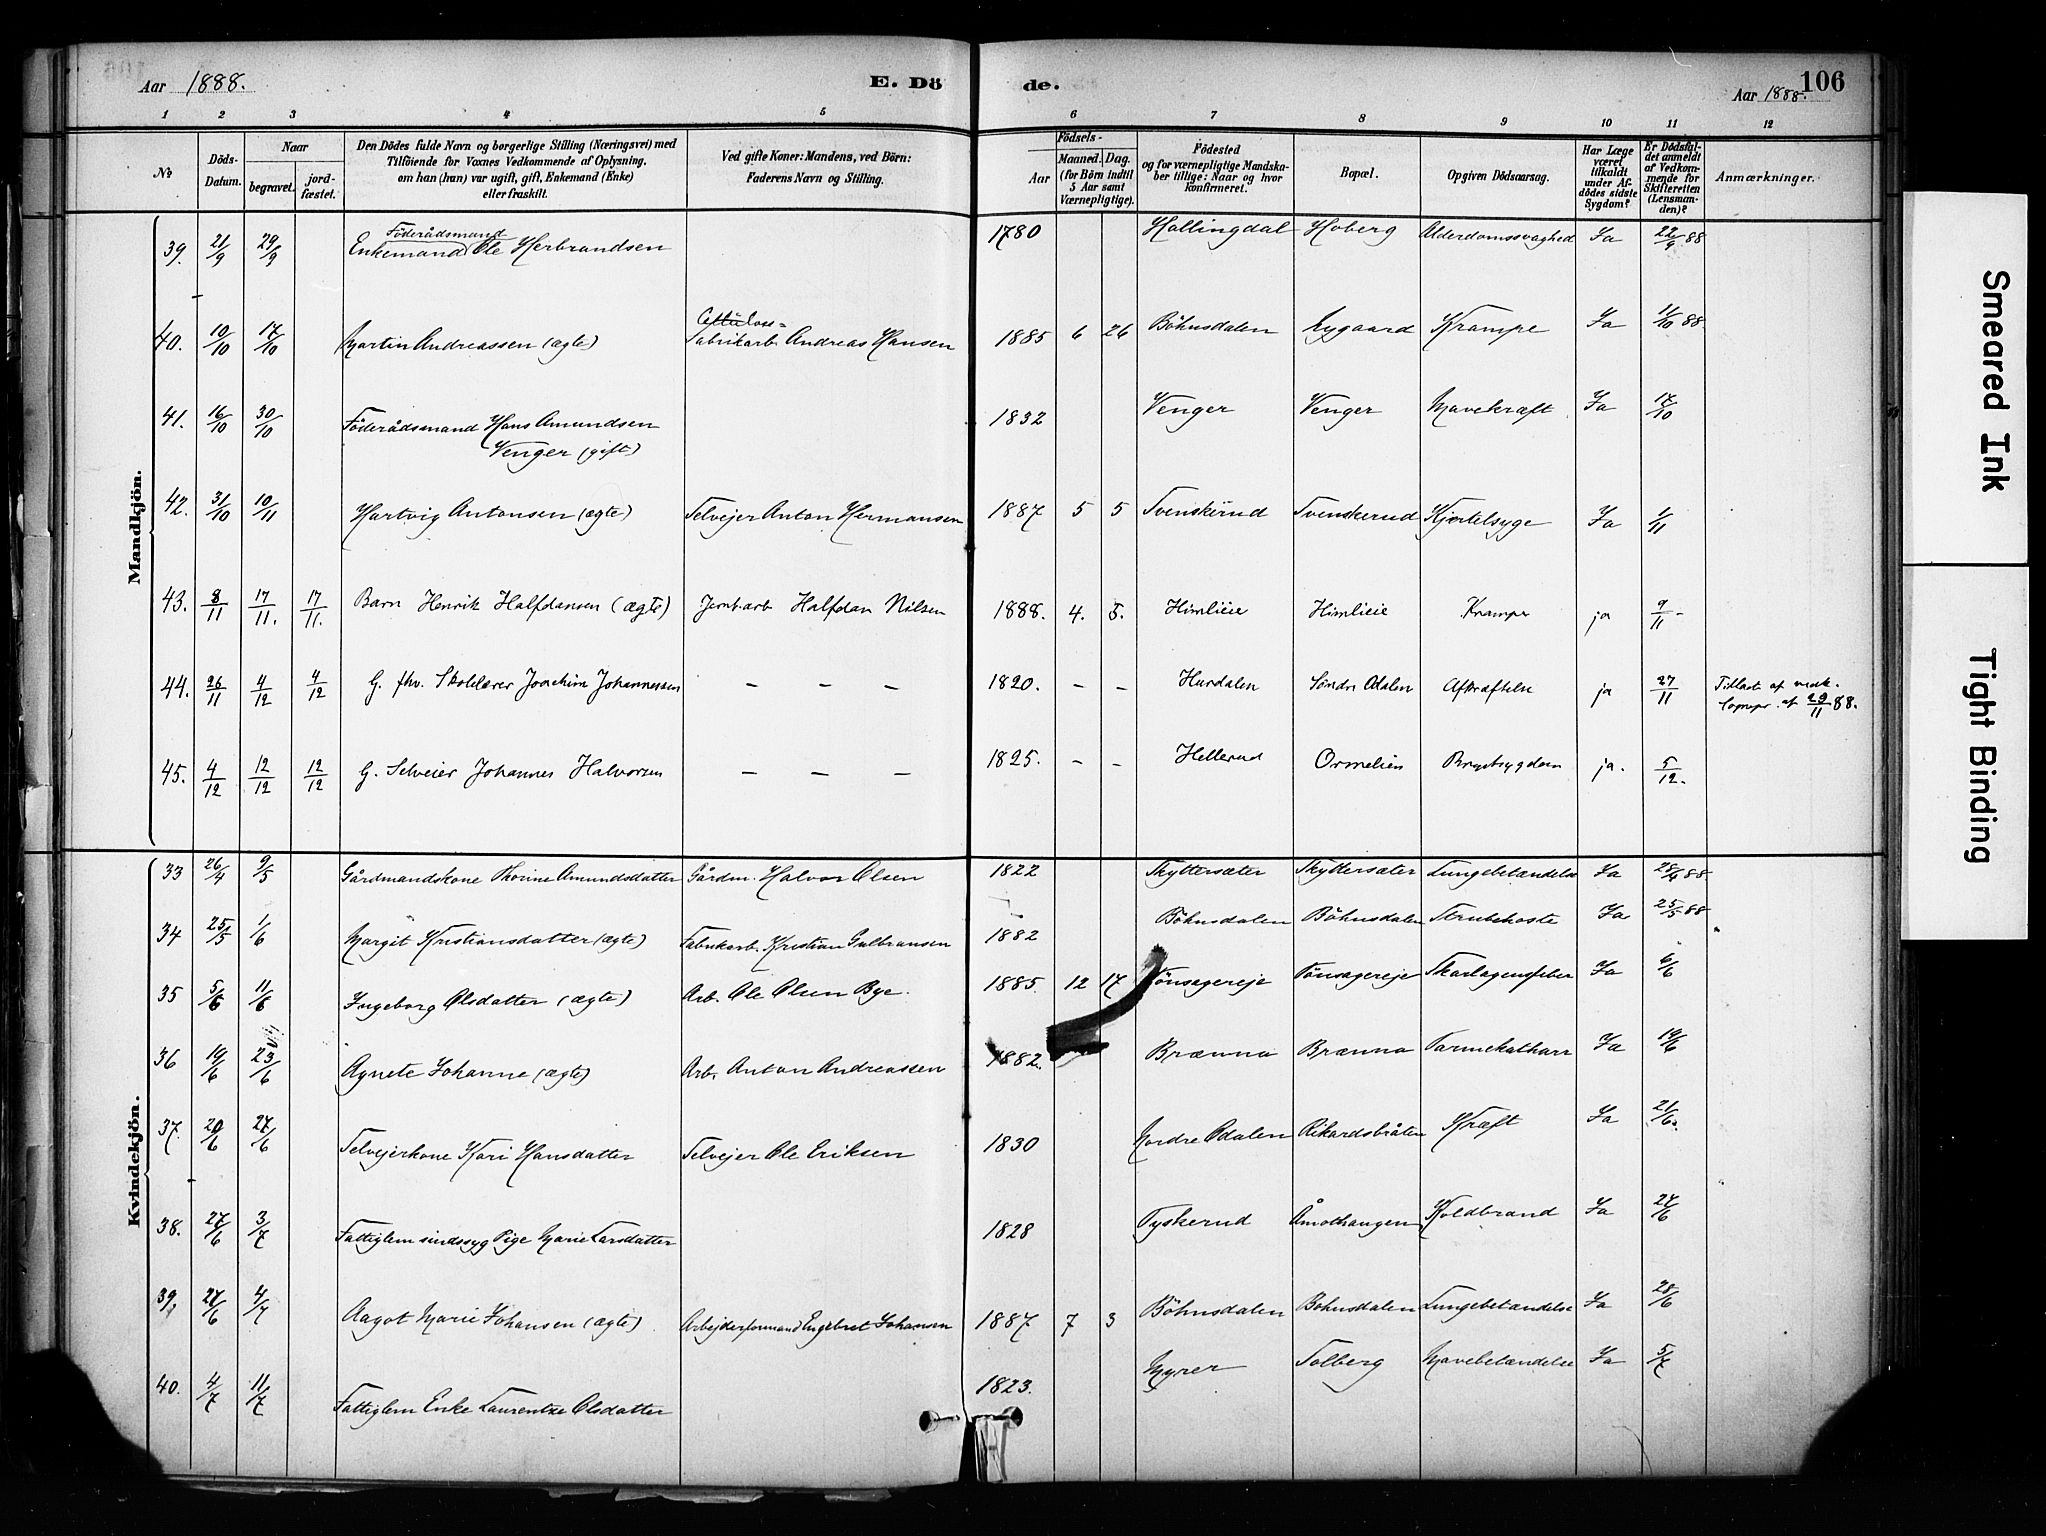 Aar 1888. E. Dö de. 106
Aar 1888.
1 2 3 4 5 6 7 8 9 10 11 12
№
Döds-Datum.
Naar
begravet.
jord-fæstet.
Den Dödes fulde Navn og borgerlige Stilling (Næringsvei) med
Tilföiende for Voxnes Vedkommende af Oplysning,
om han (hun) var ugift, gift, Enkemand (Enke)
eller fraskilt.
Ved gifte Koner: Mandens, ved Börn:
Faderens Navn og Stilling.
Födsels-
Aar
Maaned. Dag.
(for Börn indtil
5 Aar samt
Værnepligtige).
Födested
og for værnepligtige Mandska-
ber tillige: Naar og hvor
konfirmeret.
Bopæl.
Opgiven Dödsaarsag.
Har Læge
været
tilkaldt
under Af-
dödes sidste
Sygdom?
Er Dödsfal-
det anmeldt
af Vedkom-
mende for
Skifteretten
(Lensman-
den)?
Anmærkninger.
Mandkjön.
39. 21/9 29/9 Enkemand Föderådsmand Ole Herbrandsen 1780 Hallingdal Hoberg Alderdomssvaghed Ja 22/9 88
40. 10/10 17/10 Martin Andreassen (ægte) Cellulose-Fabrikarb. Andreas Hansen 1885 6 26 Böhnsdalen Nygaard Krampe Ja 11/10 88
41. 16/10 30/10 Föderådsmand Hans Amundsen 1832 Venger Venger Mavekræft Ja 17/10
Venger (gift)
42. 31/10 10/11 Hartvig Antonsen (ægte) Selvejer Anton Hermansen 1887 5 5 Svenskerud Svenskerud Kjertelsyge Ja 1/11
43. 8/11 17/11. 17/11. Barn Henrik Halfdansen (ægte) Jernb.arb Halfdan Nilsen 1888. 4. 5. Himlieie Himlieie Krampe ja 9/11 -
44. 26/11 4/12 4/12 G. fhv. Skolelærer Joachim Johannessen — — — 1820. – – Hurdalen Søndre Odalen Afkræftelse ja 27/11 Tilladt af 29/11 88.
45. 4/12 12/12 12/12 G. Selveier Johannes Halvorsen — — — 1825. – – Hellerud Ormelien Brystsygdom ja. 5/12.
Kvindekjön.
33 26/4 9/5 Gårdmandskone Thorine Amundsdatter Gårdm. Halvor Olsen 1822 Skyttersæter Skyttersæter Lungebetændelse Ja 28/4 88
34 25/5 1/6 Margit Kristiansdatter (ægte) Fabrikarb. Kristian Gulbransen 1882 Böhnsdalen Böhnsdalen Strubehoste Ja 25/5 88
35 5/6 11/6 Ingeborg Olsdatter (ægte) Arb. Ole Olsen Bye. 1885. 12 17 Tönsagereje Tönsagereje Skarlagensfeber Ja 6/6
36 19/6 23/6 Agnete Johanne (ægte) Arb. Anton Andreassen 1882. Brænna Brænna Tarmekatharr Ja 19/6
37. 20/6 27/6 Selvejerkone Kari Hansdatter Selvejer Ole Eriksen 1830 Nordre Odalen Rikardsbråten Kræft Ja 21/6.
38. 27/6 3/7 Fattiglem sindssyg Pige Marie Larsdatter 1828 Tyskerud Åmothaugen Koldbrand Ja 27/6
39. 27/6 4/7 Aagot Marie Johansen (ægte) Arbejderformand Engebret Johansen 1887 7 3 Böhnsdalen Böhnsdalen Lungebetændelse Ja 28/6
40. 4/7 11/7 Fattiglem Enke Laurentze Olsdatter 1823. Myrer Solberg Mavebetændelse Ja 5/7
Smeared Ink
Tight Binding